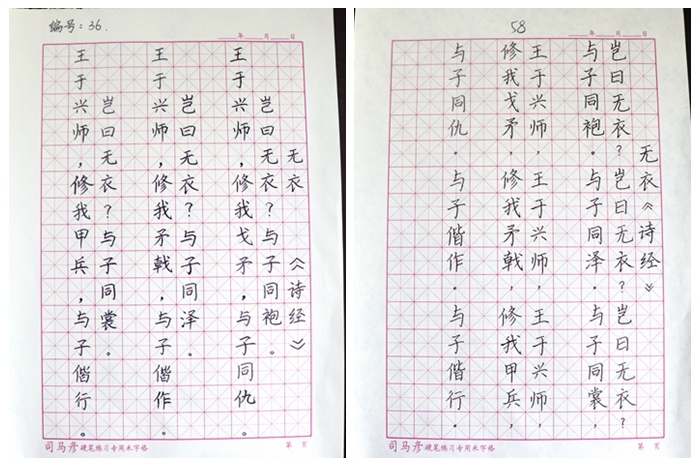 编号:36.
年 月 日
无衣 《诗经》
岂曰无衣?与子同袍。
王于兴师,修我戈矛,与子同仇。
岂曰无衣?与子同泽。
王于兴师,修我矛戟,与子偕作。
岂曰无衣?与子同裳。
王于兴师,修我甲兵,与子偕行。
司马彦硬笔练习专用米字格 第 页
58
年 月 日
无衣《诗经》
岂曰无衣?岂曰无衣?岂曰无衣?
与子同袍。与子同泽。与子同裳,
王于兴师,王于兴师,王于兴师,
修我戈矛,修我矛戟,修我甲兵,
与子同仇。与子偕作。与子偕行。
司马彦硬笔练习专用米字格 第 页